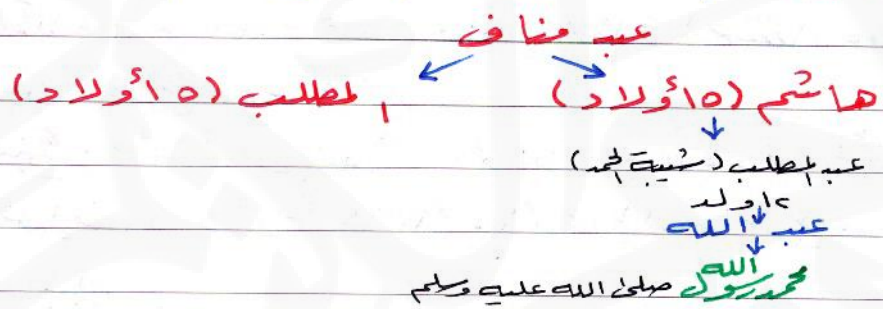 عبد مناف
هاشم (٥ أولاد) المطلب (٥ أولاد)
عبد المطلب (شيبة الحمد)
١٢ ولد
عبد الله
محمد رسول الله صلى الله عليه وسلم